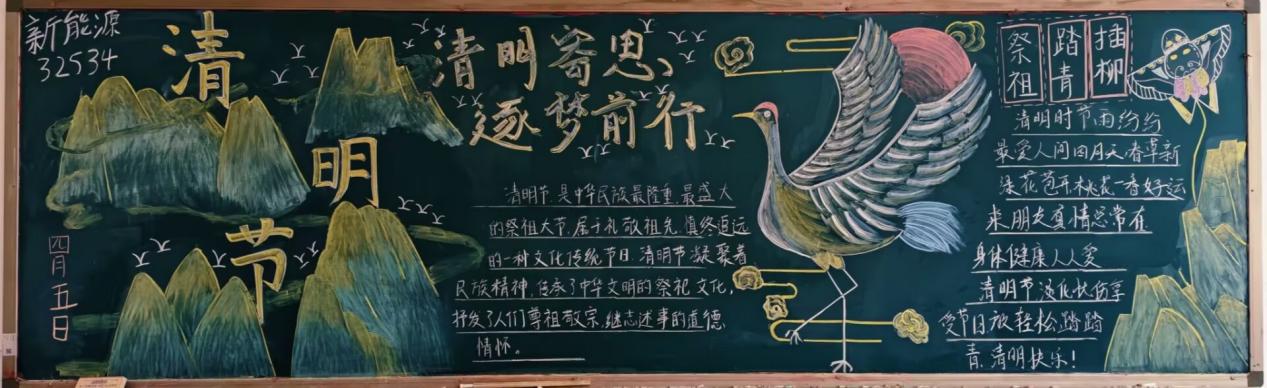 新能源
32534
清
明
节
四月五日
清明寄思
逐梦前行
清明节,是中华民族最隆重最盛大
的祭祖大节,属于礼敬祖先、慎终追远
的一种文化传统节日,清明节凝聚着
民族精神,传承了中华文明的祭祀文化,
抒发了人们尊祖敬宗、继志述事的道德
情怀。
祭祖
踏青
插柳
清明时节雨纷纷
最爱人间四月天,春草新
绿花苞开,桃花一香好运
来,朋友真情总常在
身体健康人人爱
清明节淡化忧伤享
受节日放轻松踏踏
青,清明快乐!